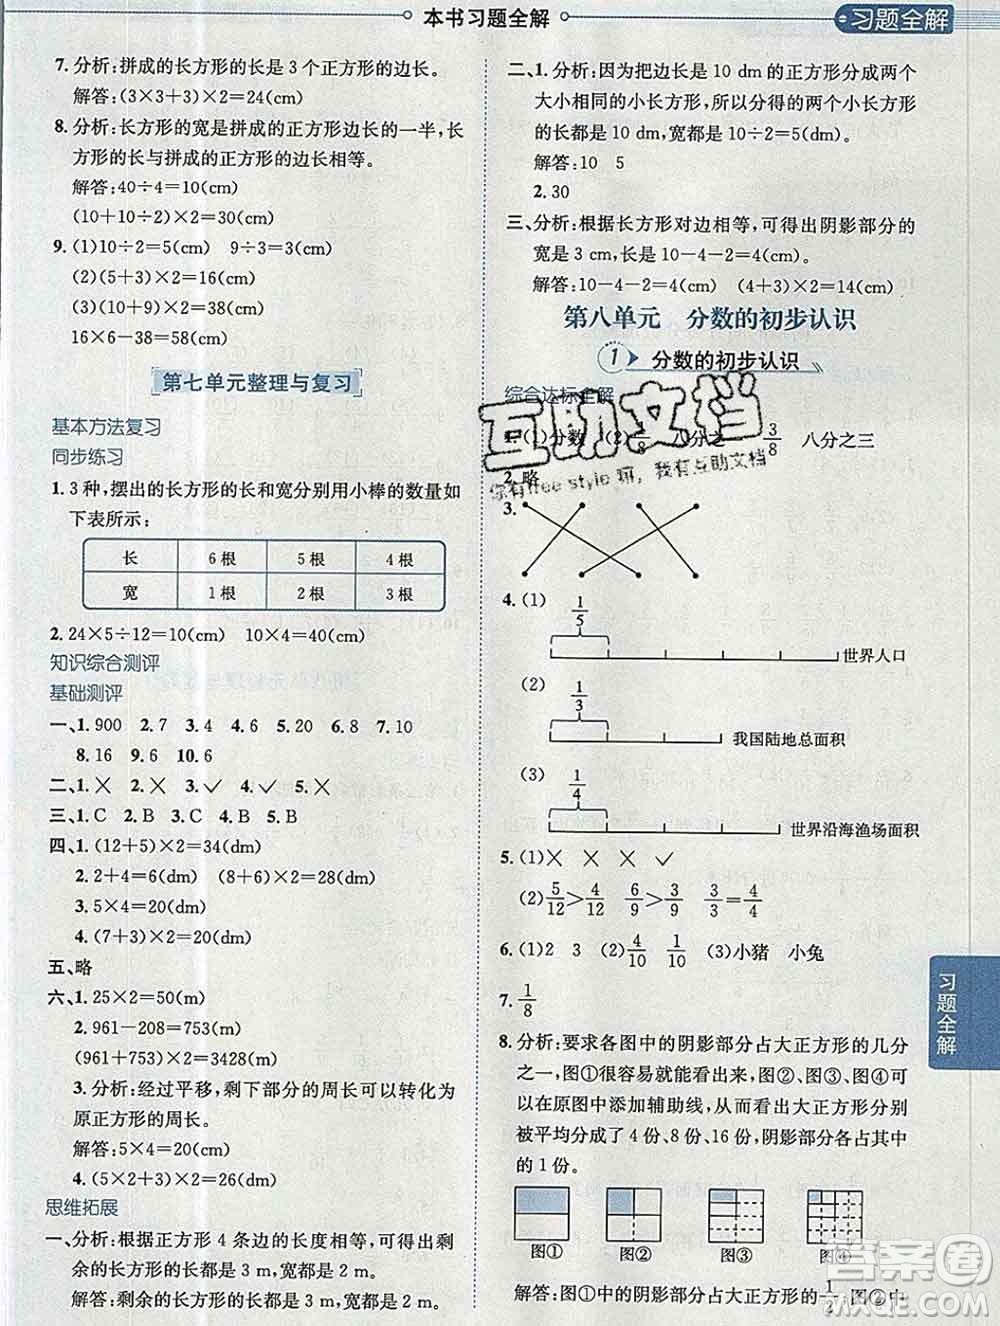 本书习题全解
习题全解
7. 分析:拼成的长方形的长是 3 个正方形的边长。
解答:(3×3+3)×2=24(cm)
8. 分析:长方形的宽是拼成的正方形边长的一半,长
方形的长与拼成的正方形的边长相等。
解答:40÷4=10(cm)
(10+10÷2)×2=30(cm)
9. (1)10÷2=5(cm) 9÷3=3(cm)
(2)(5+3)×2=16(cm)
(3)(10+9)×2=38(cm)
16×6-38=58(cm)
第七单元整理与复习
基本方法复习
同步练习
1. 3 种,摆出的长方形的长和宽分别用小棒的数量如
下表所示:
长 6 根 5 根 4 根
宽 1 根 2 根 3 根
2. 24×5÷12=10(cm) 10×4=40(cm)
知识综合测评
基础测评
一、1. 900 2. 7 3. 4 4. 6 5. 20 6. 8 7. 10
8. 16 9. 6 10. 6
二、1. × 2. × 3. ✓ 4. ✓ 5. ×
三、1. C 2. B 3. C 4. B 5. B
四、1. (12+5)×2=34(dm)
2. 2+4=6(dm) (8+6)×2=28(dm)
3. 5×4=20(dm)
4. (7+3)×2=20(dm)
五、略
六、1. 25×2=50(m)
2. 961-208=753(m)
(961+753)×2=3428(m)
3. 分析:经过平移,剩下部分的周长可以转化为
原正方形的周长。
解答:5×4=20(dm)
4. (5×2+3)×2=26(dm)
思维拓展
一、分析:根据正方形 4 条边的长度相等,可得出剩
余的长方形的长都是 3 m,宽都是 2 m。
解答:剩余的长方形的长都是 3 m,宽都是 2 m。
二、1. 分析:因为把边长是 10 dm 的正方形分成两个
大小相同的小长方形,所以分得的两个小长方形
的长都是 10 dm,宽都是 10÷2=5(dm)
解答:10 5
2. 30
三、分析:根据长方形对边相等,可得出阴影部分的
宽是 3 cm,长是 10-4-2=4(cm)
解答:10-4-2=4(cm) (4+3)×2=14(cm)
第八单元 分数的初步认识
1 分数的初步认识
综合达标全解
1. (1)分数 (2) 八分之一 3/8 八分之三
互助文档
2. 略
你有free style 嘛,我有互助文档
3.
4. (1) 1/5
世界人口
(2) 1/3
我国陆地总面积
(3) 1/4
世界沿海渔场面积
5. (1)× × ✓ ×
(2) 5/12>4/12 6/9>3/9 3/3=4/4
6. (1)2 3 (2) 4/10 1/10 (3)小猪 小兔
7. 1/8
8. 分析:要求各图中的阴影部分占大正方形的几分
之一,图①很容易就能看出来,图②、图③、图④可
以在原图中添加辅助线,从而看出大正方形分别
被平均分成了 4 份、8 份、16 份,阴影部分是其中
的 1 份。
图① 图② 图③ 图④
解答:图①中的阴影部分占大正方形的1/2,图②中
习题全解
答案圈
MXQE.COM